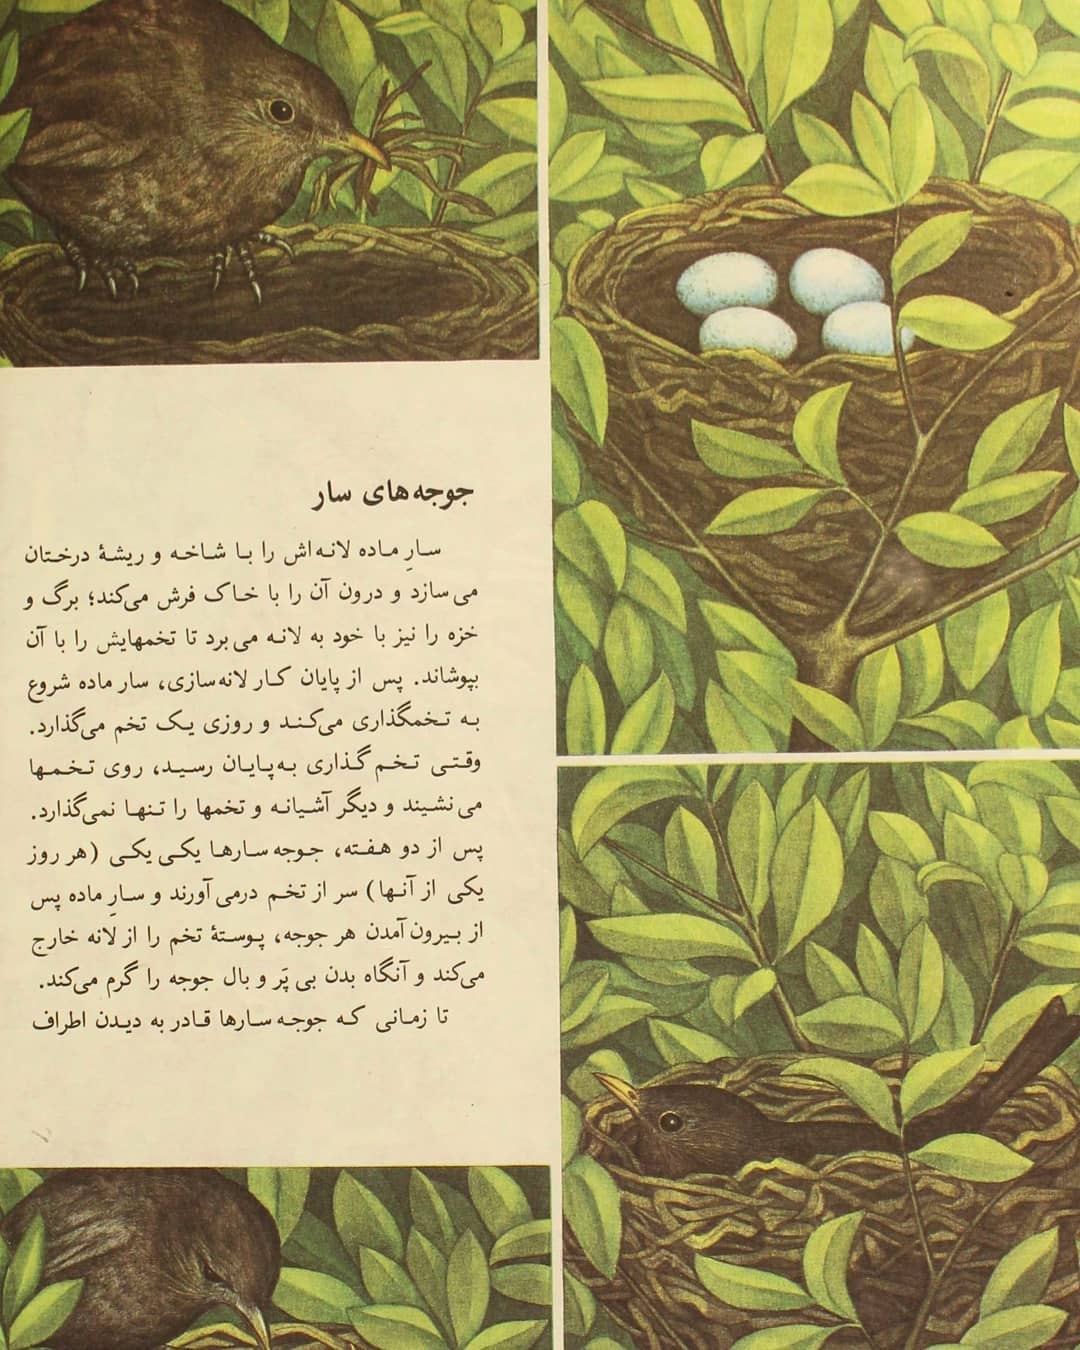 جوجه‌های سار
سارِ ماده لانه‌اش را با شاخه و ریشهٔ درختان
می‌سازد و درون آن را با خاک فرش می‌کند؛ برگ و
خزه را نیز با خود به لانه می‌برد تا تخمهایش را با آن
بپوشاند. پس از پایان کار لانه‌سازی، سار ماده شروع
به تخمگذاری می‌کند و روزی یک تخم می‌گذارد.
وقتی تخم‌گذاری به‌پایان رسید، روی تخمها
می‌نشیند و دیگر آشیانه و تخمها را تنها نمی‌گذارد.
پس از دو هفته، جوجه‌سارها یکی‌یکی (هر روز
یکی از آنها) سر از تخم درمی‌آورند و سارِ ماده پس
از بیرون‌آمدن هر جوجه، پوستهٔ تخم را از لانه خارج
می‌کند و آنگاه بدن بی‌پَر و بال جوجه را گرم می‌کند.
تا زمانی که جوجه‌سارها قادر به دیدن اطراف